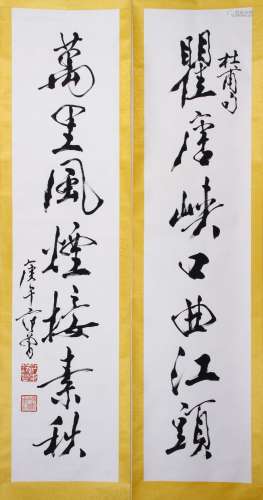 杜甫句
瞿唐峽口曲江頭
萬里風煙接素秋
庚午 范曾